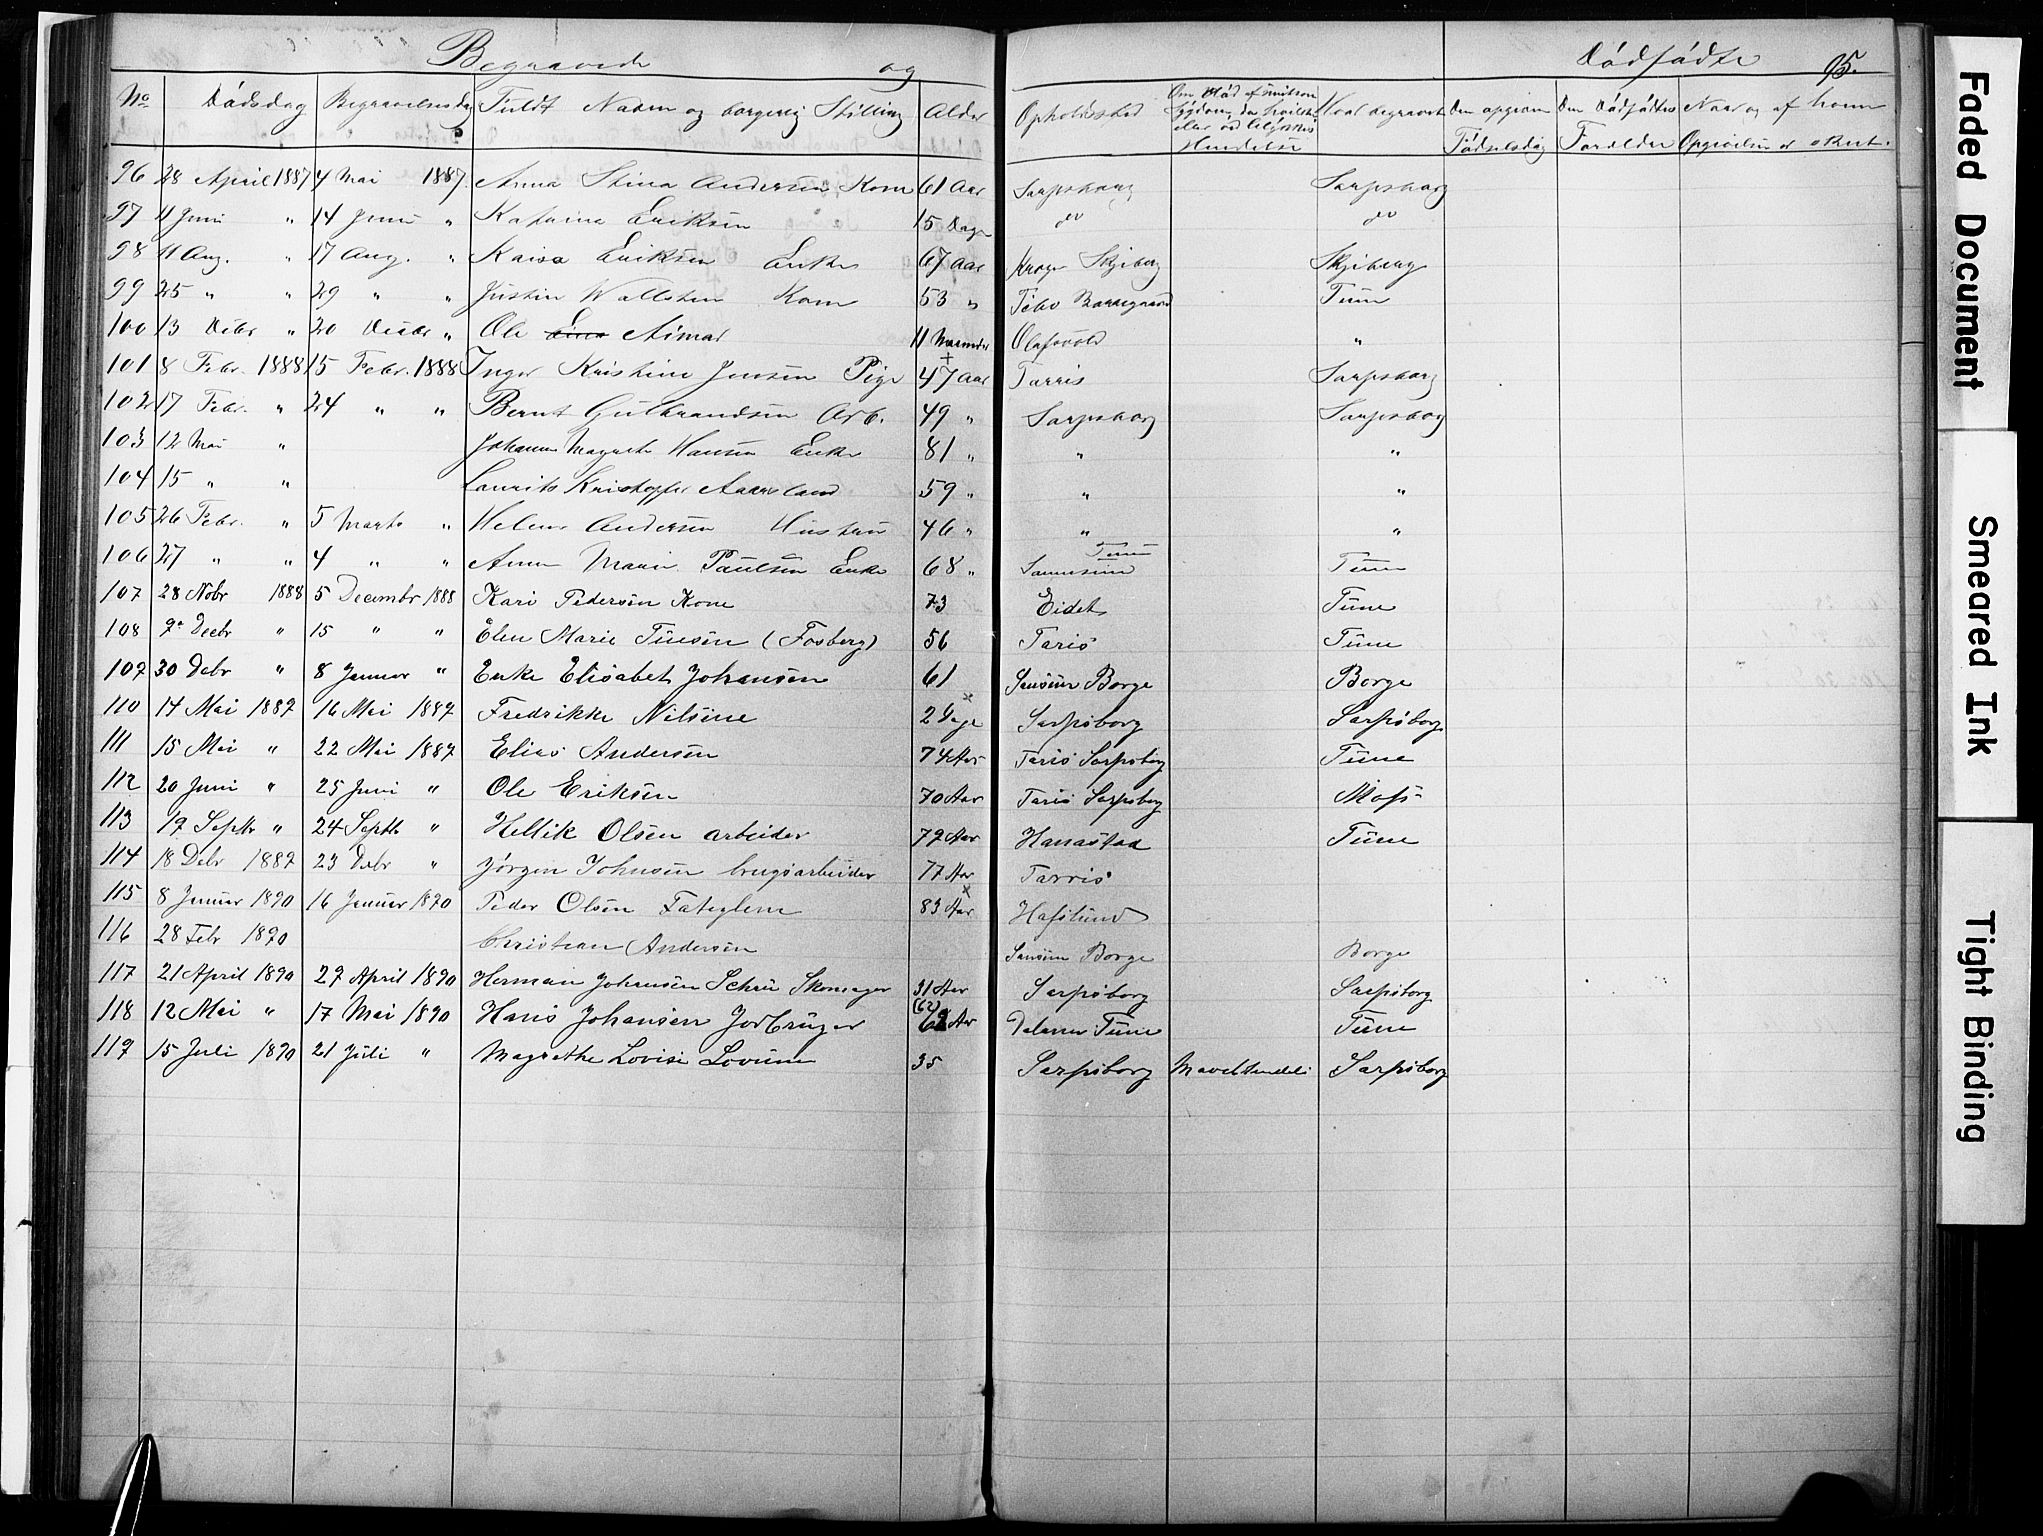 Begravede og Dødfødte 95.
No Dødsdag Begravelsesdag Fuldt Navn og borgerlig Stilling Alder Opholdssted Om Død af smitsom Sygdom, da hvilken eller ved Ulykkes Hændelse Hvor begravet Den opgivne Fødselsdag Den Dødfødtes Forældre Naar og af hvem Opgivelsen er skeet.
96 28 April 1887 4 Mai 1887. Anna Stina Andersen Kone 61 Aar Sarpsborg Sarpsborg
97 11 Juni " 14 Juni " Katrine Eriksen 15 Dage do do
98 11 Aug. " 17 Aug. " Kaisa Eriksen Enke 67 Aar Skjeberg Skjeberg
99 25 " " 29 " " Justin Wallsten Kone 53 " Borregaard Tune
100 13 Debr " 20 Debr " Ole Aimar 11 Maaneder Olafsvold "
101 8 Febr. 1888 15 Febr. 1888 Inger Kristine Jensen Pige 47 Aar Tarris Sarpsborg
102 17 Febr. " 24 " " Bernt Gulbrandsen Arb. 49 " Sarpsborg Sarpsborg
103 12 Mai " Johanne Magrete Hansen Enke 81 " " "
104 15 " " Laurits Kristoffer Aaresland 59 " " "
105 26 Febr. " 5 Marts " Helene Andersen Hustru 46 " " "
106 27 " " 4 " " Anne Marie Paulsen Enke 68 " Sannesund Tune Tune
107 28 Nobr 1888 5 Decembr 1888 Kari Pedersen Kone 73 Eidet Tune
108 9 Decbr " 15 " " Elen Marie Tuesen (Fosberg) 56 Taris Tune
109 30 Debr " 8 Januar " Enke Elisabet Johansen 61 Sansun Borge Borge
110 14 Mai 1889 16 Mai 1889 Fredrikke Nilsine 2 Dage Sarpsborg Sarpsborg
111 15 Mai " 22 Mai 1889 Elias Andersen 74 Aar Taris Sarpsborg Tune
112 20 Juni " 25 Juni " Ole Eriksen 70 Aar Taris Sarpsborg Moss
113 19 Septbr " 24 Septb " Hellik Olsen arbeider 79 Aar Hanastad Tune
114 18 Debr 1889 23 Debr " Jørgen Johnsen brugsarbeider 77 Aar Tarris
115 8 Januar 1890 16 Januar 1890 Peder Olsen Fateglem 83 Aar Hafslund
116 28 Febr 1890 Christian Andersen Sansun Borge Borge
117 21 April 1890 27 April 1890 Herman Johansen Schrü Skomager 31 Aar Sarpsborg Sarpsborg
118 12 Mai " 17 Mai 1890 Hans Johansen Jorbruger (62) 62 Aar Dalerne Tune Tune
119 15 Juli 1890 21 Juli " Magrethe Lovise Lovum 35 Sarpsborg Sarpsborg
Faded Document
Smeared Ink
Tight Binding